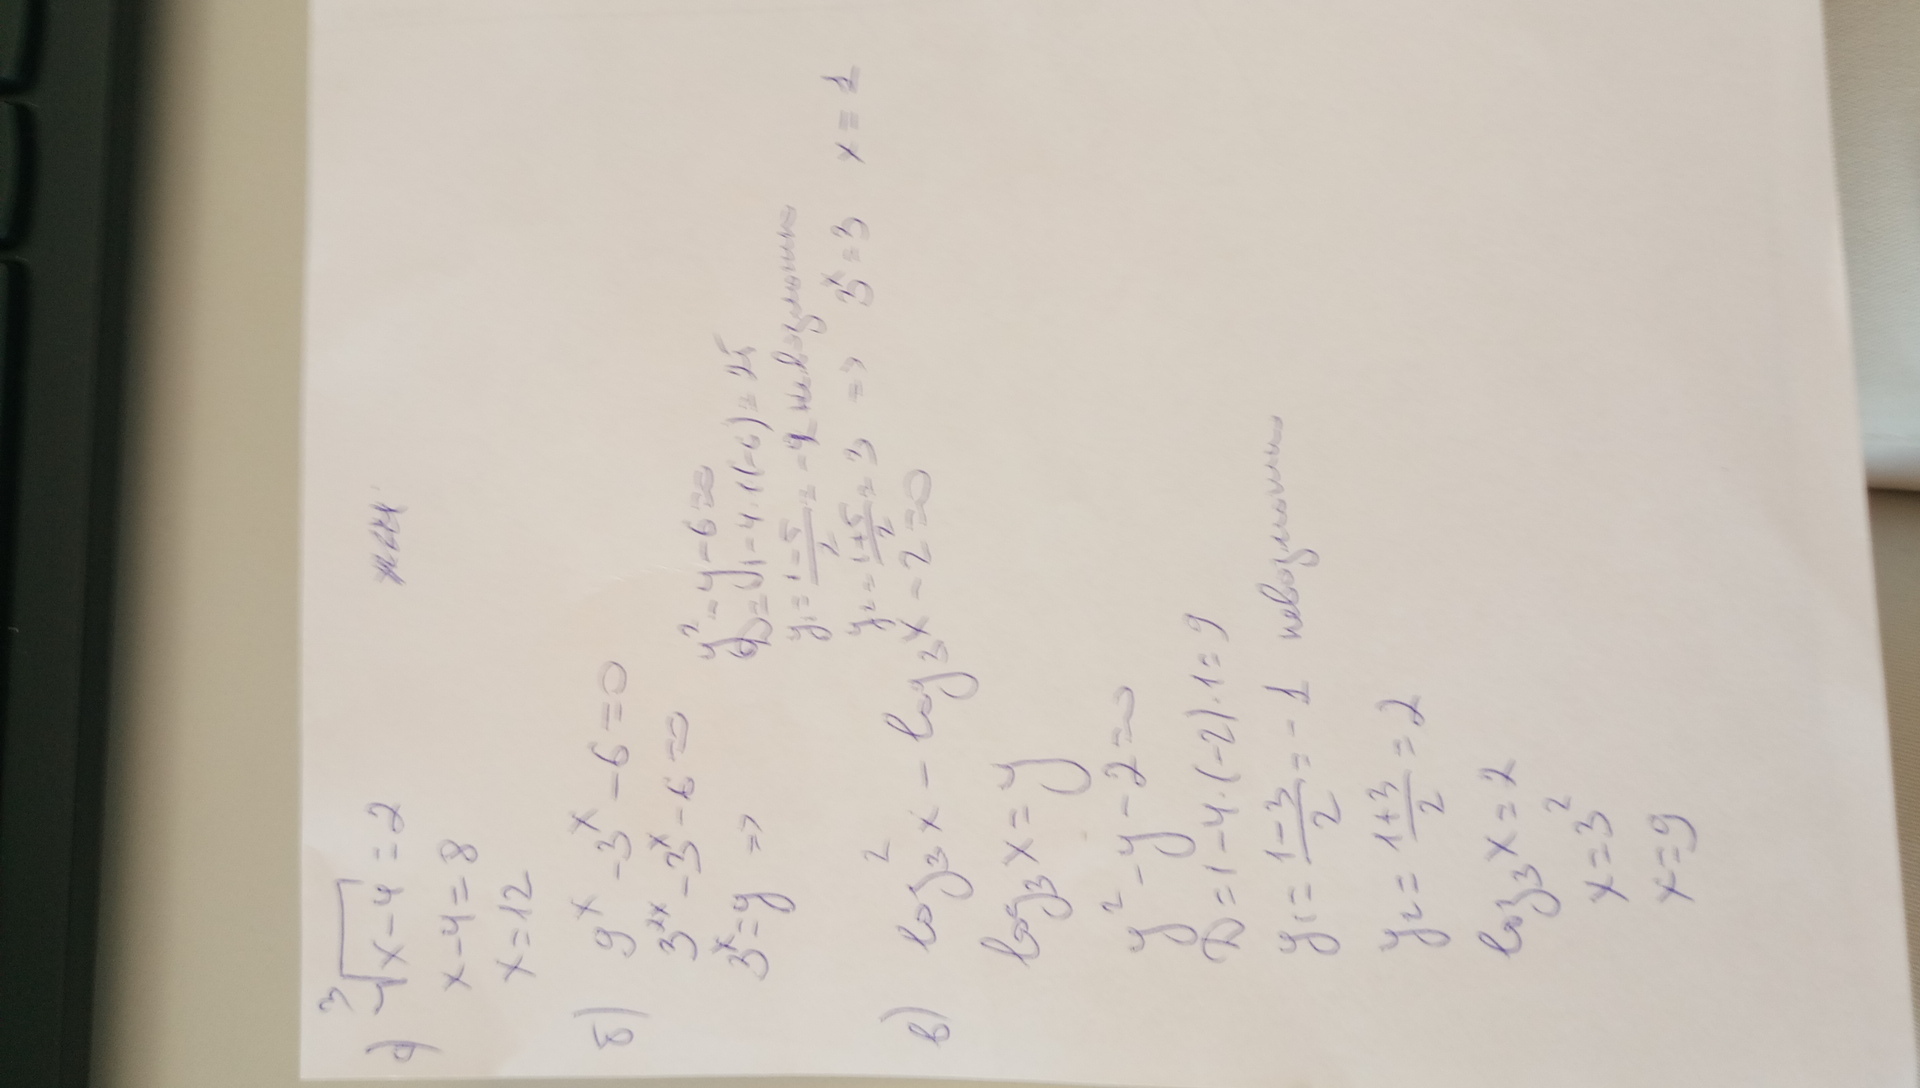 а) ³√(x-4) = 2
x-4 = 8
x = 12
б) 9ˣ - 3ˣ - 6 = 0
3²ˣ - 3ˣ - 6 = 0
3ˣ = y =>
y² - y - 6 = 0
D = 1 - 4·1(-6) = 25
y₁ = (1-5)/2 = -2 невозможно
y₂ = (1+5)/2 = 3 => 3ˣ = 3 x = 1
в) log₃²x - log₃x - 2 = 0
log₃x = y
y² - y - 2 = 0
D = 1 - 4·(-2)·1 = 9
y₁ = (1-3)/2 = -1 невозможно
y₂ = (1+3)/2 = 2
log₃x = 2
x = 3²
x = 9